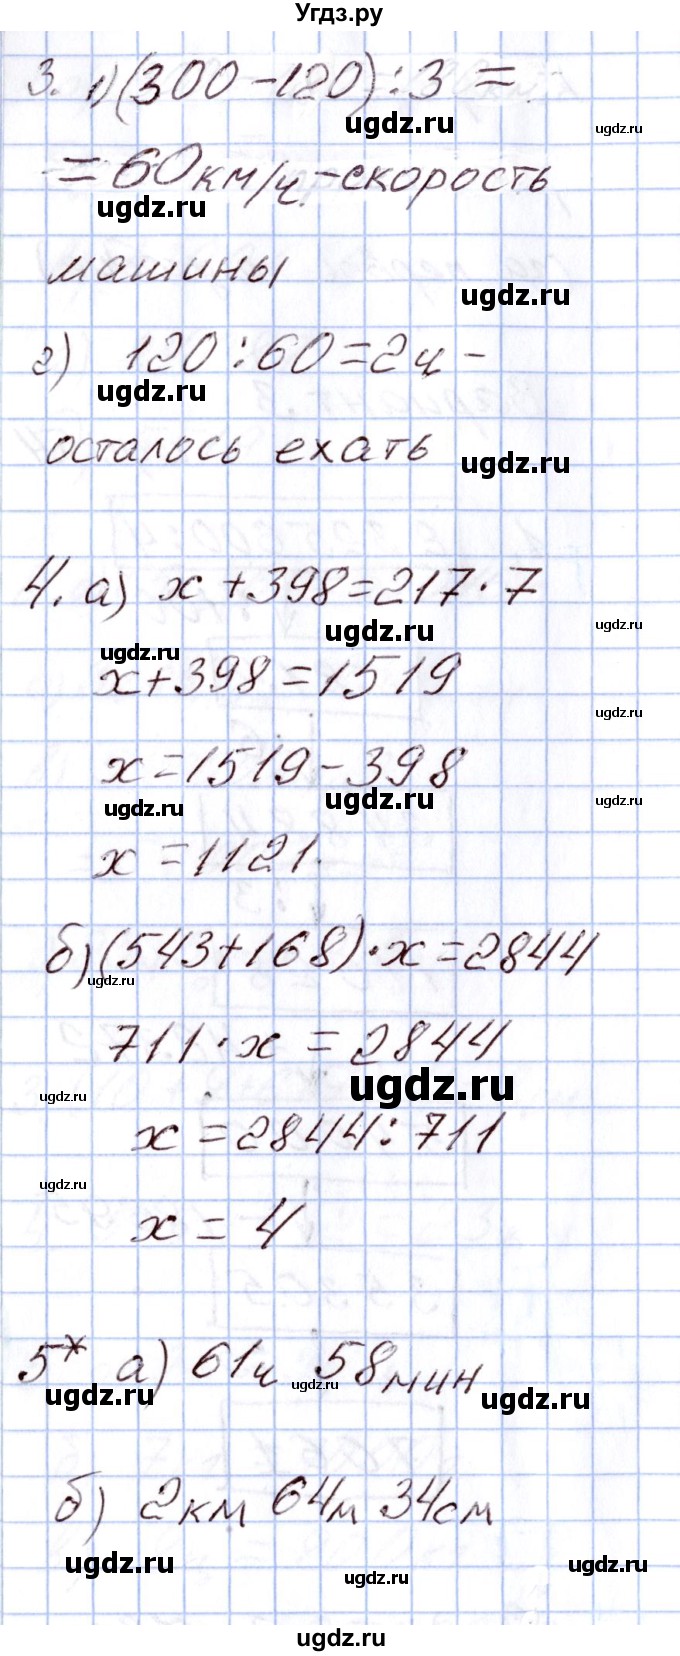 Угдз.ру
3. 1) (300-120):3 =
ugdz.ru
ugdz.ru
= 60 км/ч. - скорость
ugdz.ru
ugdz.ru
машины
ugdz.ru
2) 120:60=2ч -
ugdz.ru
ugdz.ru
осталось ехать
ugdz.ru
4. а) x+398=217·7
ugdz.ru
ugdz.ru
ugdz.ru
x+398=1519
ugdz.ru
x=1519-398
ugdz.ru
ugdz.ru
ugdz.ru
x=1121.
б) (543+168)·x=2844
ugdz.ru
711·x=2844
ugdz.ru
ugdz.ru
x=2844:711
ugdz.ru
x=4
5* а) 61ч 58мин
ugdz.ru
ugdz.ru
ugdz.ru
б) 2км 64м 34см
ugdz.ru
ugdz.ru
ugdz.ru
ugdz.ru